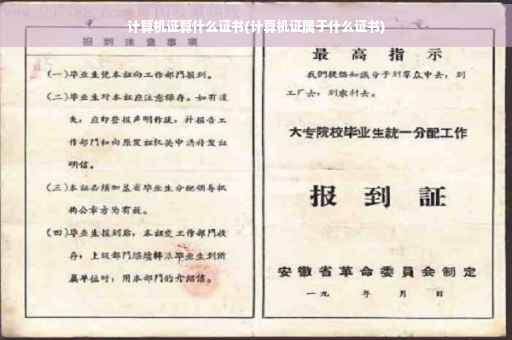 计算机证算什么证书(计算机证属于什么证书)
报到注意事项
(一)毕业生凭本证向工作部門报到。
(二)毕业生对本证应注意保存。如有遗
失，应即登报声明作废，并报告工
作部門和向原发证机关申請补发证
明信。
(三)本证必須加盖省毕业生分配領导机
构公章方为有效。
(四)毕业生报到后，本证交工作部門收
存；上級部門繼續轉派毕业生到所
属单位时，用本部門的介紹信。
最高指示
我們提倡知識分子到羣众中去，到
工厂去，到农村去。
大专院校毕业生統一分配工作
报到証
安徽省革命委員会制定
一九 年 月 日